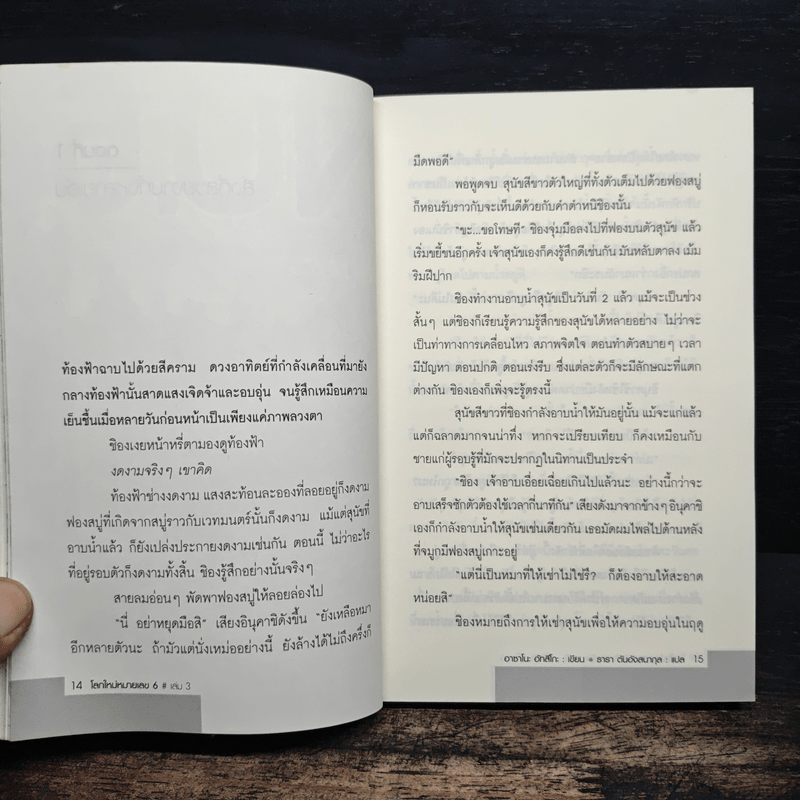 ท้องฟ้าฉาบไปด้วยสีคราม ดวงอาทิตย์ที่กำลังเคลื่อนที่มายัง
กลางท้องฟ้านั้นสาดแสงเจิดจ้าและอบอุ่น จนรู้สึกเหมือนความ
เย็นชื้นเมื่อหลายวันก่อนหน้าเป็นเพียงแค่ภาพลวงตา
ชิองเงยหน้าหรี่ตามองดูท้องฟ้า
งดงามจริงๆ เขาคิด
ท้องฟ้าช่างงดงาม แสงสะท้อนละอองที่ลอยอยู่ก็งดงาม
ฟองสบู่ที่เกิดจากสบู่ราวกับเวทมนตร์นั้นก็งดงาม แม้แต่สุนัขที่
อาบน้ำแล้ว ก็ยังเปล่งประกายงดงามเช่นกัน ตอนนี้ ไม่ว่าอะไร
ที่อยู่รอบตัวก็งดงามทั้งสิ้น ชิองรู้สึกอย่างนั้นจริงๆ
สายลมอ่อนๆ พัดพาฟองสบู่ให้ลอยล่องไป
"นี่ อย่าหยุดมือสิ" เสียงอินุคาชิดังขึ้น "ยังเหลือหมา
อีกหลายตัวนะ ถ้ามัวแต่นั่งเหม่ออย่างนี้ ยังล้างได้ไม่ถึงครึ่งก็
14 โลกใหม่หมายเลข 6 # เล่ม 3
มืดพอดี"
พอพูดจบ สุนัขสีขาวตัวใหญ่ที่ทั้งตัวเต็มไปด้วยฟองสบู่
ก็หอนรับราวกับจะเห็นดีด้วยกับคำตำหนิชิองนั้น
"ขะ...ขอโทษที" ชิองจุ่มมือลงไปที่ฟองบนตัวสุนัข แล้ว
เริ่มขยี้ขนอีกครั้ง เจ้าสุนัขเองก็คงรู้สึกดีเช่นกัน มันหลับตาลง เม้ม
ริมฝีปาก
ชิองทำงานอาบน้ำสุนัขเป็นวันที่ 2 แล้ว แม้จะเป็นช่วง
สั้นๆ แต่ชิองก็เรียนรู้ความรู้สึกของสุนัขได้หลายอย่าง ไม่ว่าจะ
เป็นท่าทางการเคลื่อนไหว สภาพจิตใจ ตอนทำตัวสบายๆ เวลา
มีปัญหา ตอนปกติ ตอนเร่งรีบ ซึ่งแต่ละตัวก็จะมีลักษณะที่แตก
ต่างกัน ชิองเองก็เพิ่งจะรู้ตรงนี้
สุนัขสีขาวที่ชิองกำลังอาบน้ำให้มันอยู่นั้น แม้จะแก่แล้ว
แต่ก็ฉลาดมากจนน่าทึ่ง หากจะเปรียบเทียบ ก็คงเหมือนกับ
ชายแก่ผู้รอบรู้ที่มักจะปรากฏในนิทานเป็นประจำ
"ชิอง เจ้าอาบเอื่อยเฉื่อยเกินไปแล้วนะ อย่างนี้กว่าจะ
อาบเสร็จซักตัวต้องใช้เวลากี่นาทีกัน" เสียงดังมาจากข้างๆ อินุคาชิ
เองก็กำลังอาบน้ำให้สุนัขเช่นเดียวกัน เธอมัดผมไพล่ไปด้านหลัง
ที่จมูกมีฟองสบู่เกาะอยู่
"แต่นี่เป็นหมาที่ให้เช่าไม่ใช่รึ? ก็ต้องอาบให้สะอาด
หน่อยสิ"
ชิองหมายถึงการให้เช่าสุนัขเพื่อให้ความอบอุ่นในฤดู
อาซาโนะ อัทสึโกะ : เขียน ธารา ตันอังสนากุล : แปล 15